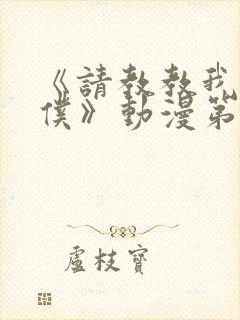 《請教教我
僕》動漫第
盧枝寶